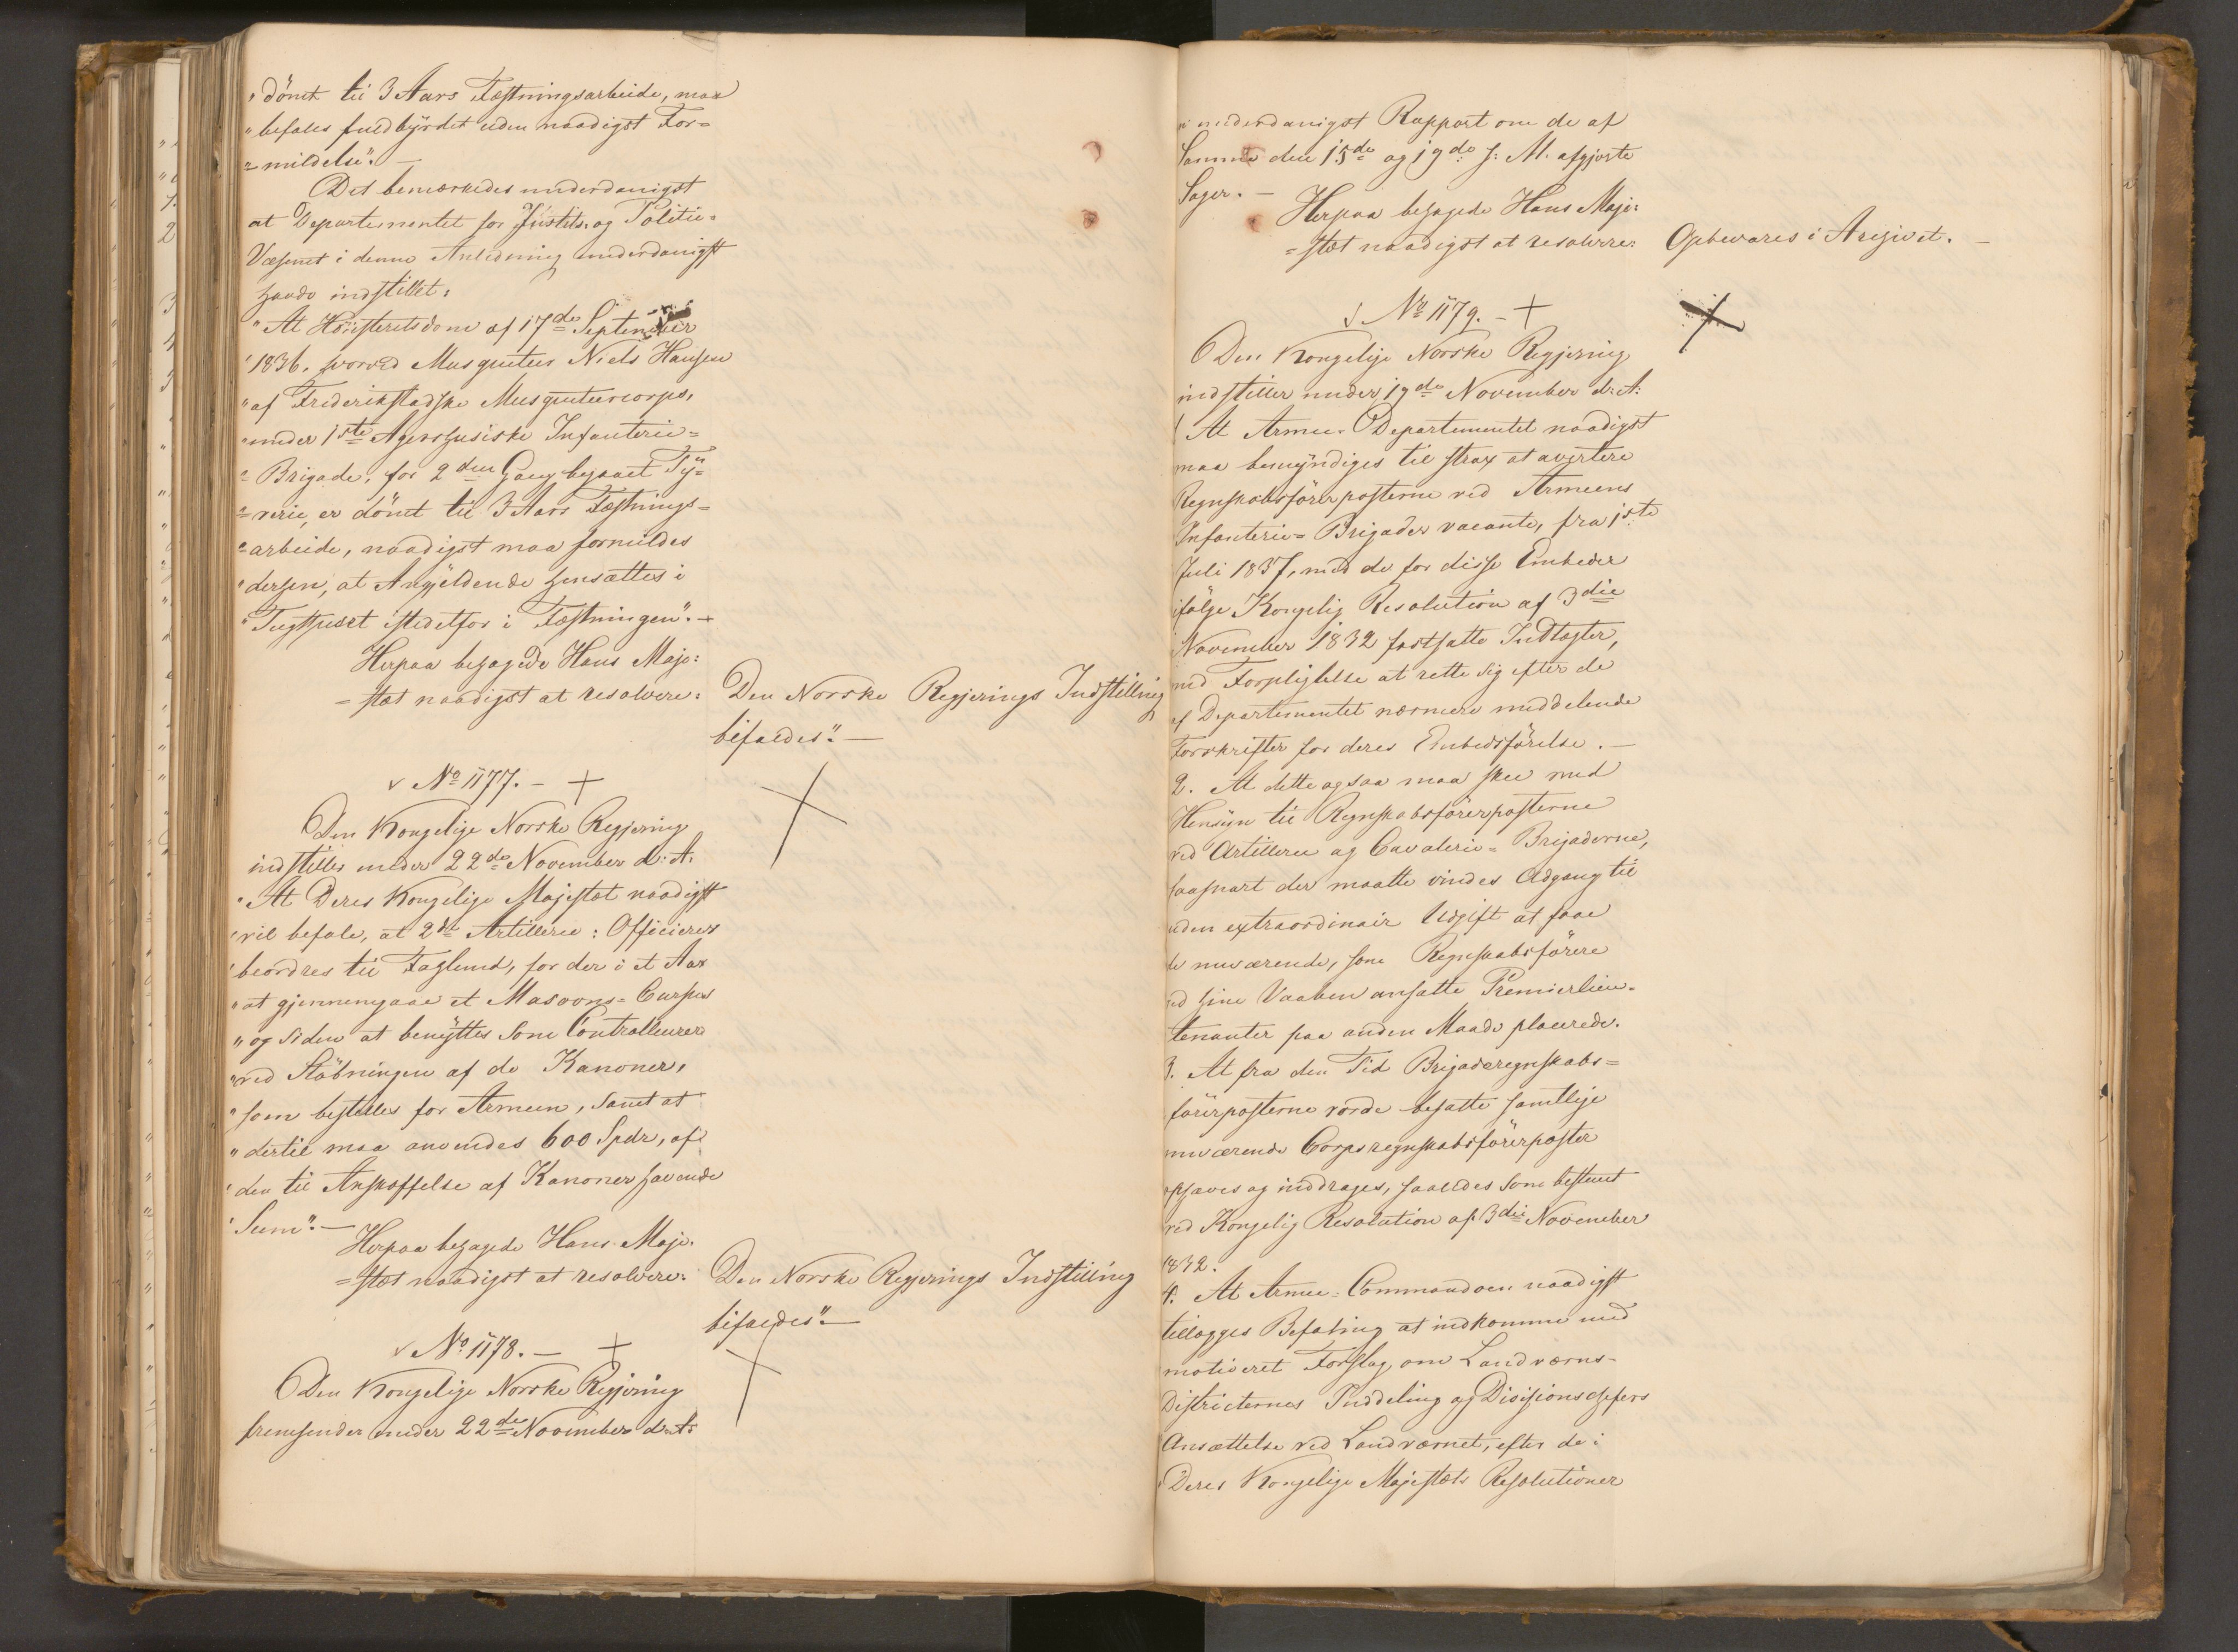 "dömt til 3 Aars Fæstningsarbeide, maa
"befales fuldbyrdet uden naadigst For=
"mildelse". —
Det bemærkedes underdanigst
at Departementet for Justits- og Politie-
Væsenet i denne Anledning underdanigst
havde indstillet:
"At Höiesteretsdom af 17de September
"1836, hvorved Musqueteer Niels Hansen
"af Frederikstadske Musqueteercorps,
"under 1ste Agershusiske Infanterie=
"Brigade, for 2den Gang begaaet Ty=
"verie, er dömt til 3 Aars Fæstnings=
"arbeide, naadigst maa formildes
"derhen, at Angjeldende hensættes i
"Tugthuset istedetfor i Fæstningen". —
Herpaa behagede Hans Maje=
=stæt naadigst at resolvere:
Den Norske Regjerings Indstilling
bifaldes". —
No 1177. —
Den Kongelige Norske Regjering
indstiller under 22de November d: A:
"At Deres Kongelige Majestæt naadigst
"vil befale, at 2de Artillerie: Officierer
"beordres til Faglund, for der i et Aar
"at gjennemgaae et
"og siden at benyttes som Controlleurer
"ved Stöbningen af de Kanoner,
"som bestilles for Armeen, samt at
"dertil maa anvendes 600 Spdr, af
"den til Anskaffelse af Kanoner havende
"Sum". —
Herpaa behagede Hans Maje=
=stæt naadigst at resolvere:
Den Norske Regjerings Indstilling
bifaldes" —
No 1178. —
Den Kongelige Norske Regjering
fremsender under 22de November d: A:
underdanigst Rapport om de af
Samme den 15de og 19de s: M. afgjorte
Sager. —
Herpaa behagede Hans Maje=
=stæt naadigst at resolvere:
Opbevares i Archivet. —
No 1179. —
Den Kongelige Norske Regjering
indstiller under 19de November d: A:
At Armee-Departementet naadigst
maa bemyndiges til strax at avertere
Regnskabsförerposterne ved Armeens
Infanterie= Brigader vacante, fra 1ste
Juli 1837, med de for disse Embeder
ifölge Kongelig Resolution af 3die
November 1832 fastsatte Indtægter,
med Forpligtelse at rette sig efter de
af Departementet nærmere meddelende
Forskrifter for deres Embedsförelse. —
2. At dette ogsaa maa skee med
Hensyn til Regnskabsförerposterne
ved Artillerie og Cavalerie= Brigaderne,
saasnart der maatte vindes Adgang til
uden extraordinair Udgift at faae
de nuværende, som Regnskabsförere
ved sine Vaaben ansatte Premierlieu-
tenanter paa anden Maade placerede.
3. At fra den Tid Brigaderegnskabs=
förerposterne vorde besatte samtlige
nuværende Corpsregnskabsförerposter
ophæves og inddrages, saaledes som bestemt
ved Kongelig Resolution af 3die November
1832.
4. At Armee= Commandoen naadigst
tillægges Befaling at indkomme med
motiveret Forslag om Landværns-
Districternes Inddeling og Divisionschefers
Ansættelse ved Landværnet, efter de i
Deres Kongelige Majestæts Resolutioner